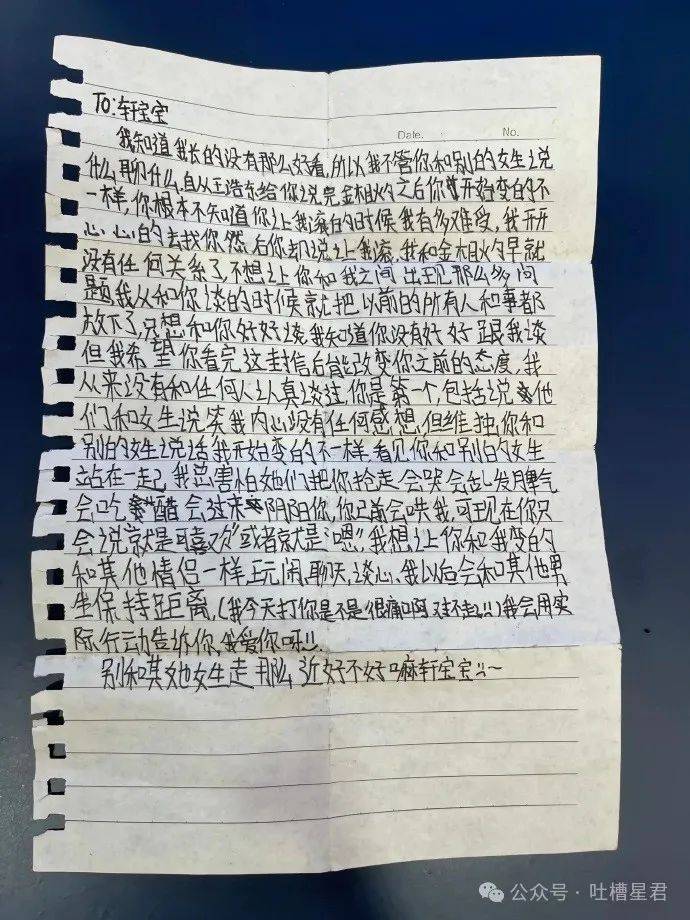 To:轩宝宝
Date.
No.
我知道我长的没有那么好看,所以我不管你和别的女生说
什么聊什么,自从王浩东给你说完金相灼之后你就开始变的不
一样,你根本不知道你让我滚的时候我有多难受,我开开
心心的去找你然后你却说让我滚,我和金相灼早就
没有任何关系了,不想让你和我之间出现那么多问
题我从和你谈的时候就把以前的所有人和事都
放下了,只想和你好好谈我知道你没有好好跟我谈
但我希望你看完这封信后能改变你之前的态度,我
从来没有和任何人认真谈过,你是第一个,包括说他
们和女生说笑我内心没有任何感想,但维独你和
别的女生说话我开始变的不一样,看见你和别的女生
站在一起,我总害怕她们把你抢走,会哭会乱发脾气
会吃醋会过来阴阳你,你之前会哄我,可现在你只
会说就是可喜欢"或者就是"嗯",我想让你和我变的
和其他情侣一样玩闹、聊天、谈心、我以后会和其他男
生保持距离,(我今天打你是不是很痛啊,对不起!!)我会用实
际行动告诉你,我爱你呀!!
别和其她女生走那么近好不好嘛轩宝宝!!~
公众号·吐槽星君